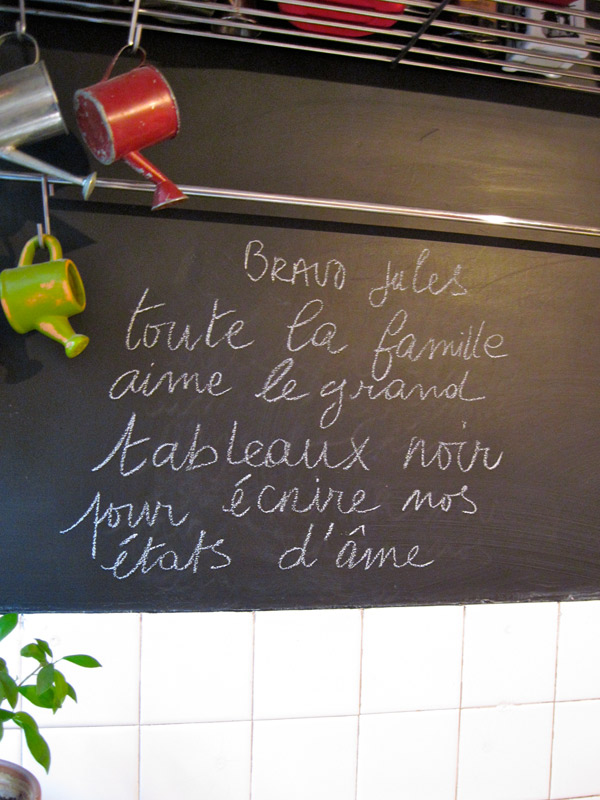 BRAVO Jules
toute la famille
aime le grand
tableaux noir
pour écrire nos
états d'âme